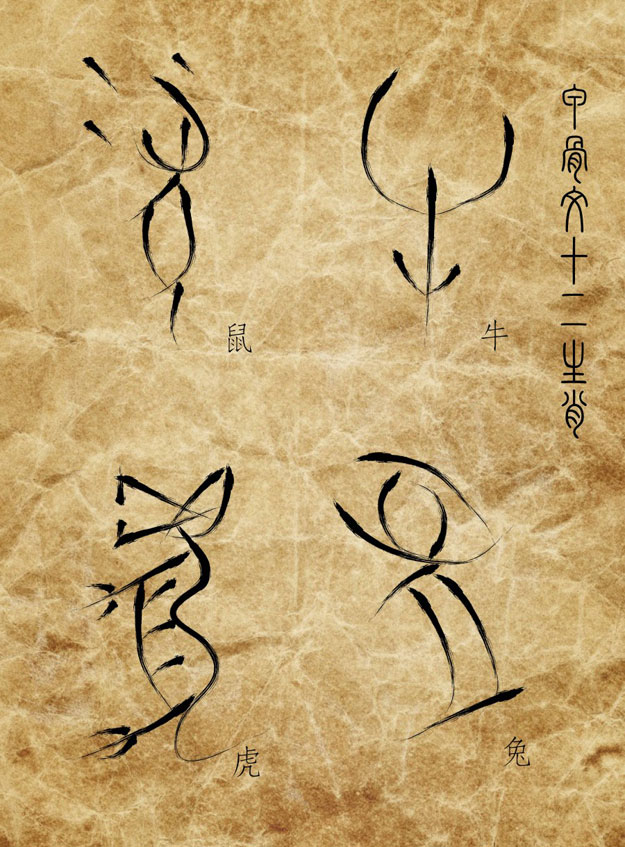 甲骨文十二生肖
鼠
牛
虎
兔